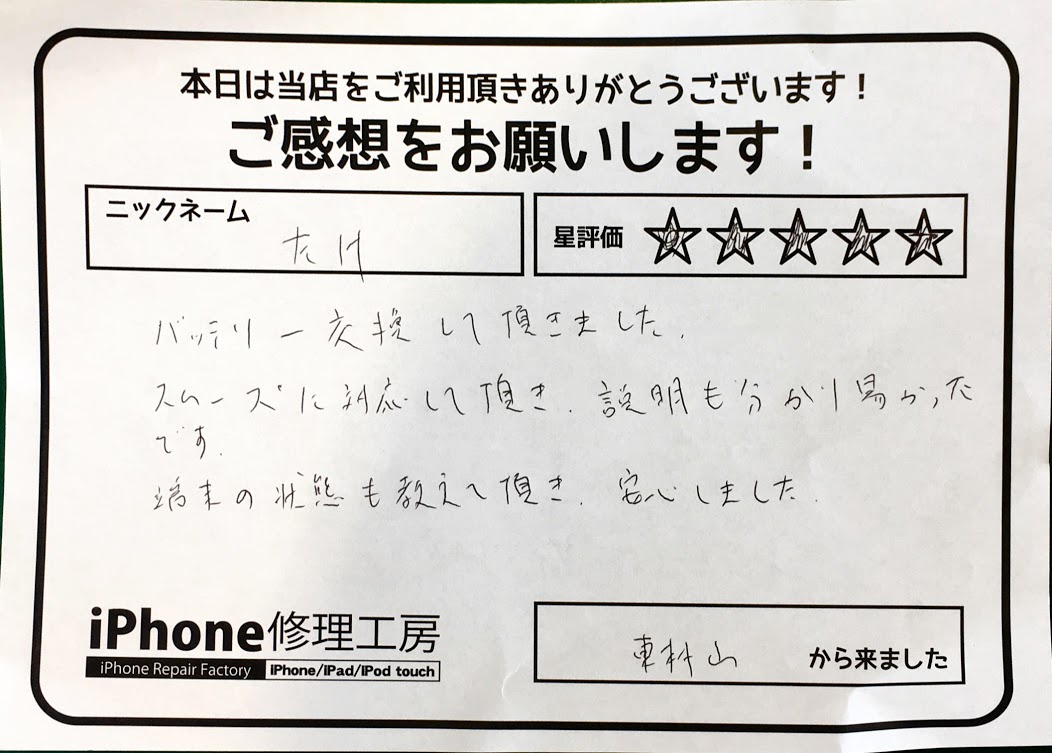 本日は当店をご利用頂きありがとうございます！
ご感想をお願いします！
ニックネーム
たけ
星評価
バッテリー交換して頂きました.
スムーズに対応して頂き.説明も分かり易かった
です.
端末の状態も教えて頂き.安心しました.
iPhone修理工房
iPhone Repair Factory iPhone/iPad/iPod touch
東村山 から来ました